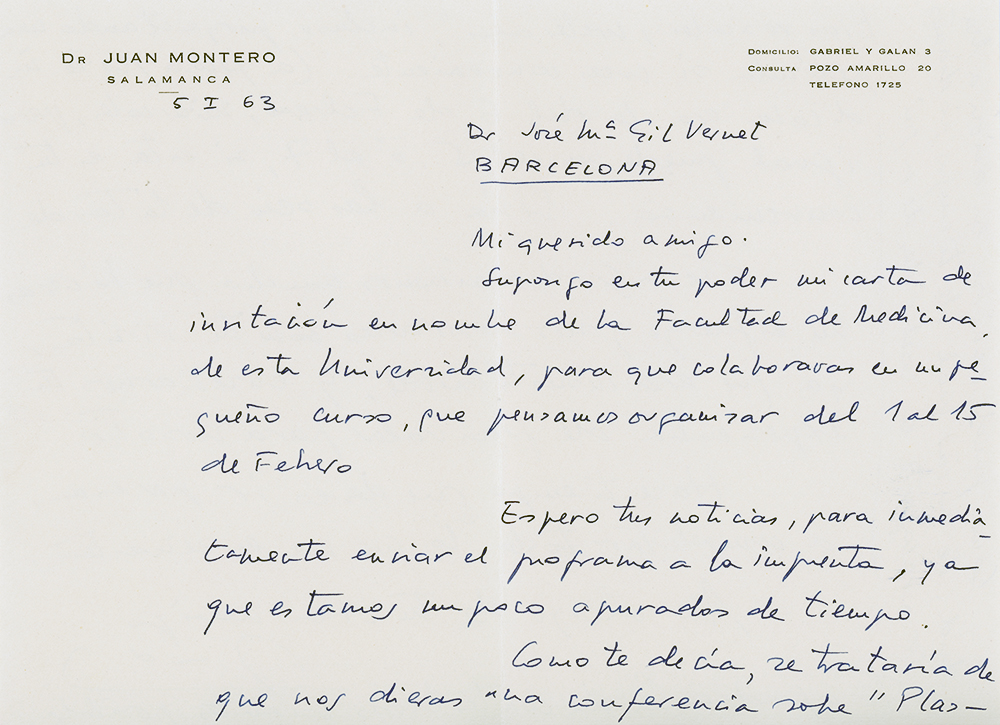 DR JUAN MONTERO
SALAMANCA
5 I 63
DOMICILIO: GABRIEL Y GALAN 3
CONSULTA POZO AMARILLO 20
TELEFONO 1725
Dr José Mª Gil Vernet
BARCELONA
Mi querido amigo.
Supongo en tu poder mi carta de
invitación en nombre de la Facultad de Medicina,
de esta Universidad, para que colaboraras en un pe-
queño curso, que pensamos organizar del 1 al 15
de Febrero
Espero tus noticias, para inmedia-
tamente enviar el programa a la imprenta, ya
que estamos un poco apurados de tiempo.
Como te decía, se trataría de
que nos dieras una conferencia sobre "Plas-